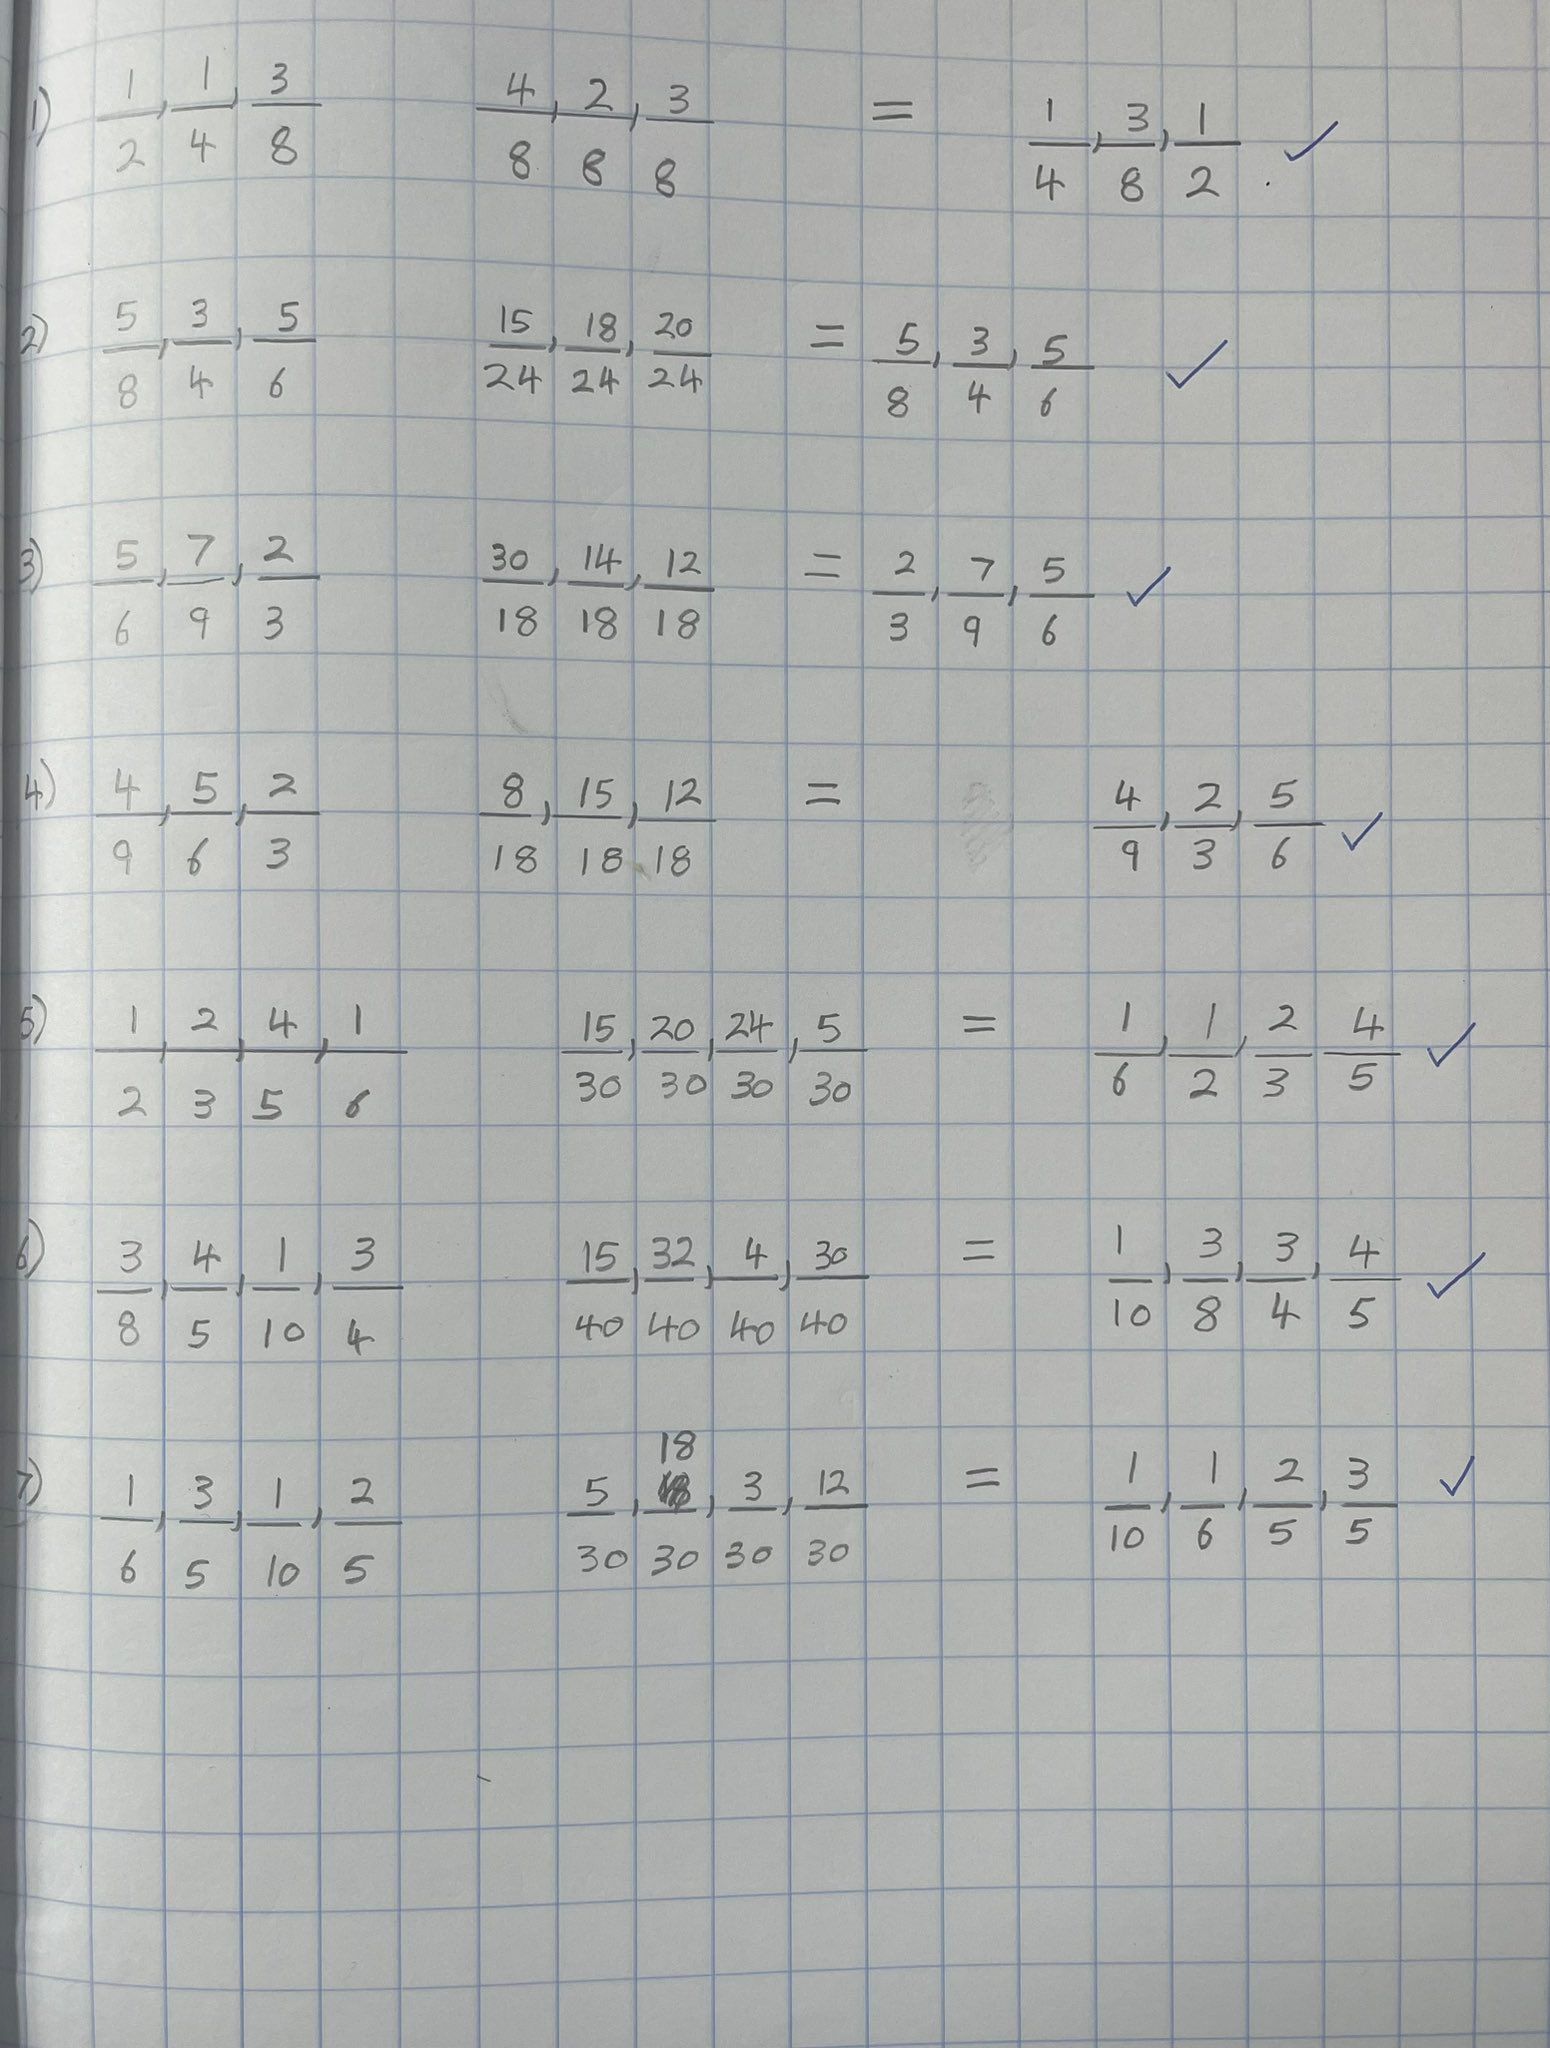 1) 1/2, 1/4, 3/8 4/8, 2/8, 3/8 = 1/4, 3/8, 1/2 ✓
2) 5/8, 3/4, 5/6 15/24, 18/24, 20/24 = 5/8, 3/4, 5/6 ✓
3) 5/6, 7/9, 2/3 30/18, 14/18, 12/18 = 2/3, 7/9, 5/6 ✓
4) 4/9, 5/6, 2/3 8/18, 15/18, 12/18 = 4/9, 2/3, 5/6 ✓
5) 1/2, 2/3, 4/5, 1/6 15/30, 20/30, 24/30, 5/30 = 1/6, 1/2, 2/3 4/5 ✓
6) 3/8, 4/5, 1/10, 3/4 15/40, 32/40, 4/40, 30/40 = 1/10, 3/8, 3/4, 4/5 ✓
7) 1/6, 3/5, 1/10, 2/5 5/30, 18/30, 3/30, 12/30 = 1/10, 1/6, 2/5, 3/5 ✓